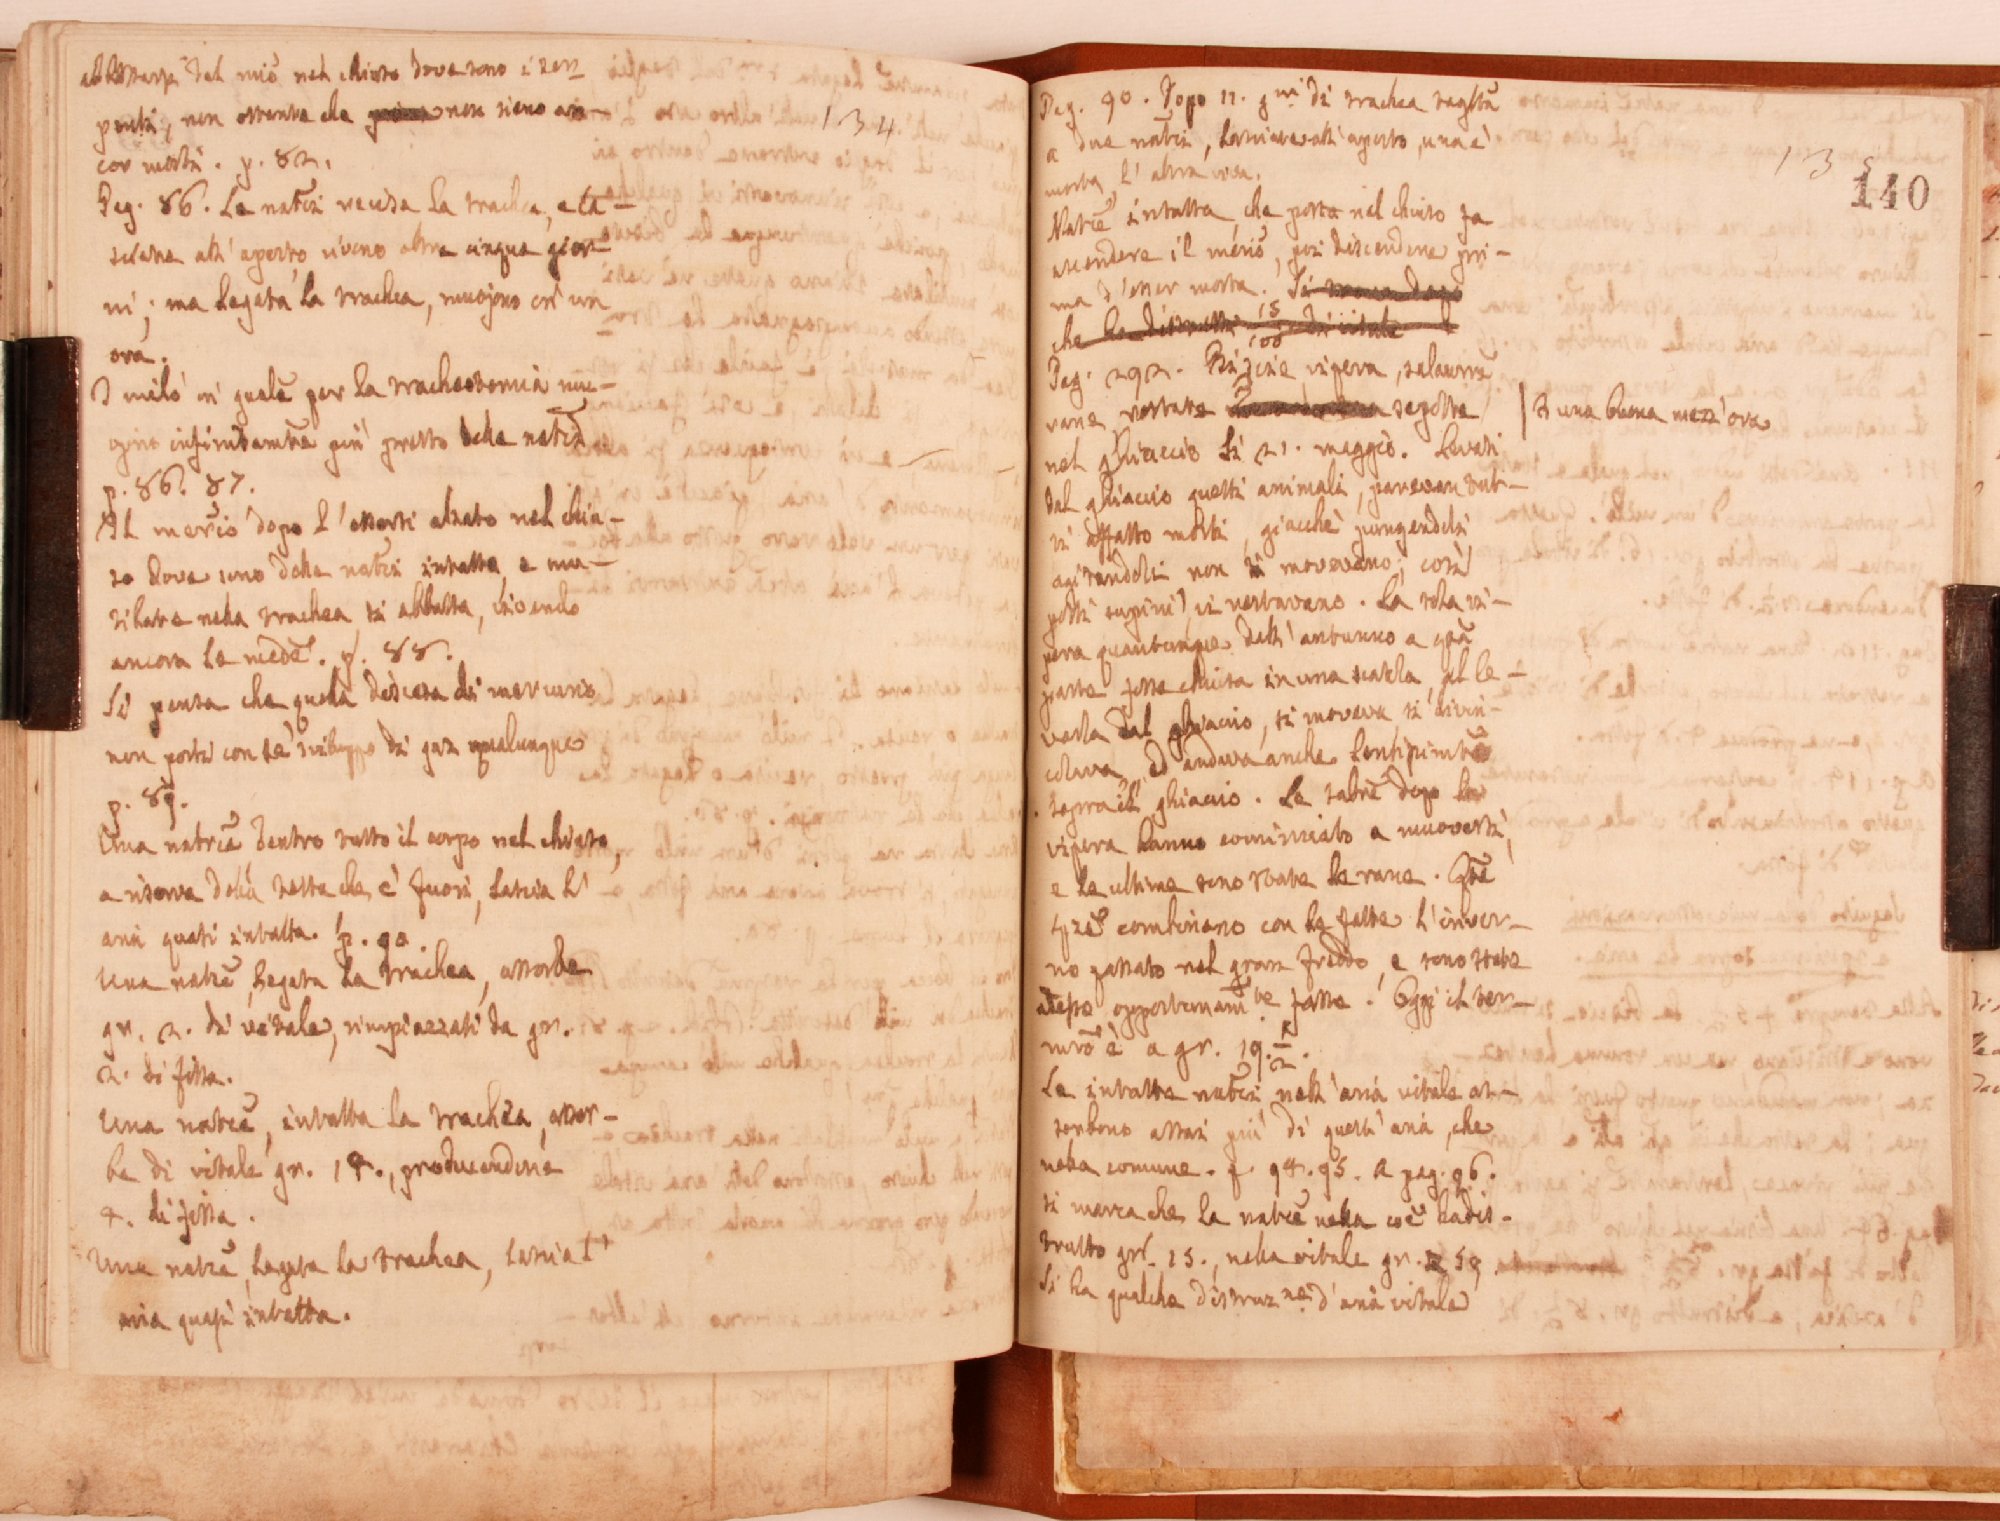 abbassarsi del mio nel chiuso dove sono i serp
134
penti, non ostante che non sieno an-
cor morti. p. 82.
Pag. 86. Le natrici recisa la trachea, e la-
sciate all' aperto vivono oltre cinque gior-
ni; ma legata la trachea, muojono in un
ora.
I mili in guale per la tracheotomia mu-
ojono infinitamte più presto delle natrici
p. 86. 87.
Il merio dopo l' essersi alzato nel chiu-
so dove sono delle natrici intatte, e mu-
tilate nella trachea si abbassa, vivendo
ancora le mede. p. 88.
Si pensa che quella discesa di mercurio
non porti con sè sviluppo di gaz qualunque
p. 89.
Una natrice dentro tutto il corpo nel chiuso,
a riserva della testa che è fuori, lascia l'
aria quasi intatta. p. 90.
Una natrice, legata la trachea, assorbe
gr. 2. di vitale, rimpiazzati da gr.
2. di fissa.
Una natrice, intatta la trachea, assor-
be di vitale gr. 14., producendone
4. di fissa.
Una natrice, legata la trachea, lascia l'
aria quasi intatta.
135
140
Pag. 90. Dopo 11. gni di trachea tagliata
a due natrici, lasciate all' aperto, una è
morta, l' altra viva.
Natrice intatta, che posta nel chiuso fa
ascendere il merio, poi discendere pri-
ma d' esser morta. Si
che ha distrutti 15/100 di vitale
Pag. 292. Bisscie, vipera, salamre
rane, restate sepolte | d una buona mezz' ora
nel ghiaccio li 21. maggio. Levati
dal ghiaccio questi animali, parevan tut-
ti affatto morti, giacchè pungendoli
agitandoli non si movevano; così
posti supini vi restavano. La sola vi-
pera quantunque dall' autunno a qta
parte fosse chiusa in una scatola, al le-
varla dal ghiaccio, si moveva si divin-
colava, ed andava anche lentissimte
sopra il ghiaccio. Le salme dopo la
vipera hanno cominciato a muoversi,
e le ultime sono state le rane. Qte
spze combinano con le fatte l' inver-
no passato nel gran freddo, e sono state
adesso opportunamte fatte. Oggi il ter-
mro è a gr. 19. 1/2.
Le intatte natrici nell' aria vitale as-
sorbono assai più di quest' aria, che
nella comune. p. 94. 95. A pag. 96.
si marca che la natrice nella coe ha dis-
trutto gr. 15., nella vitale gr. 59.
Si ha qualche distruzne d' aria vitale